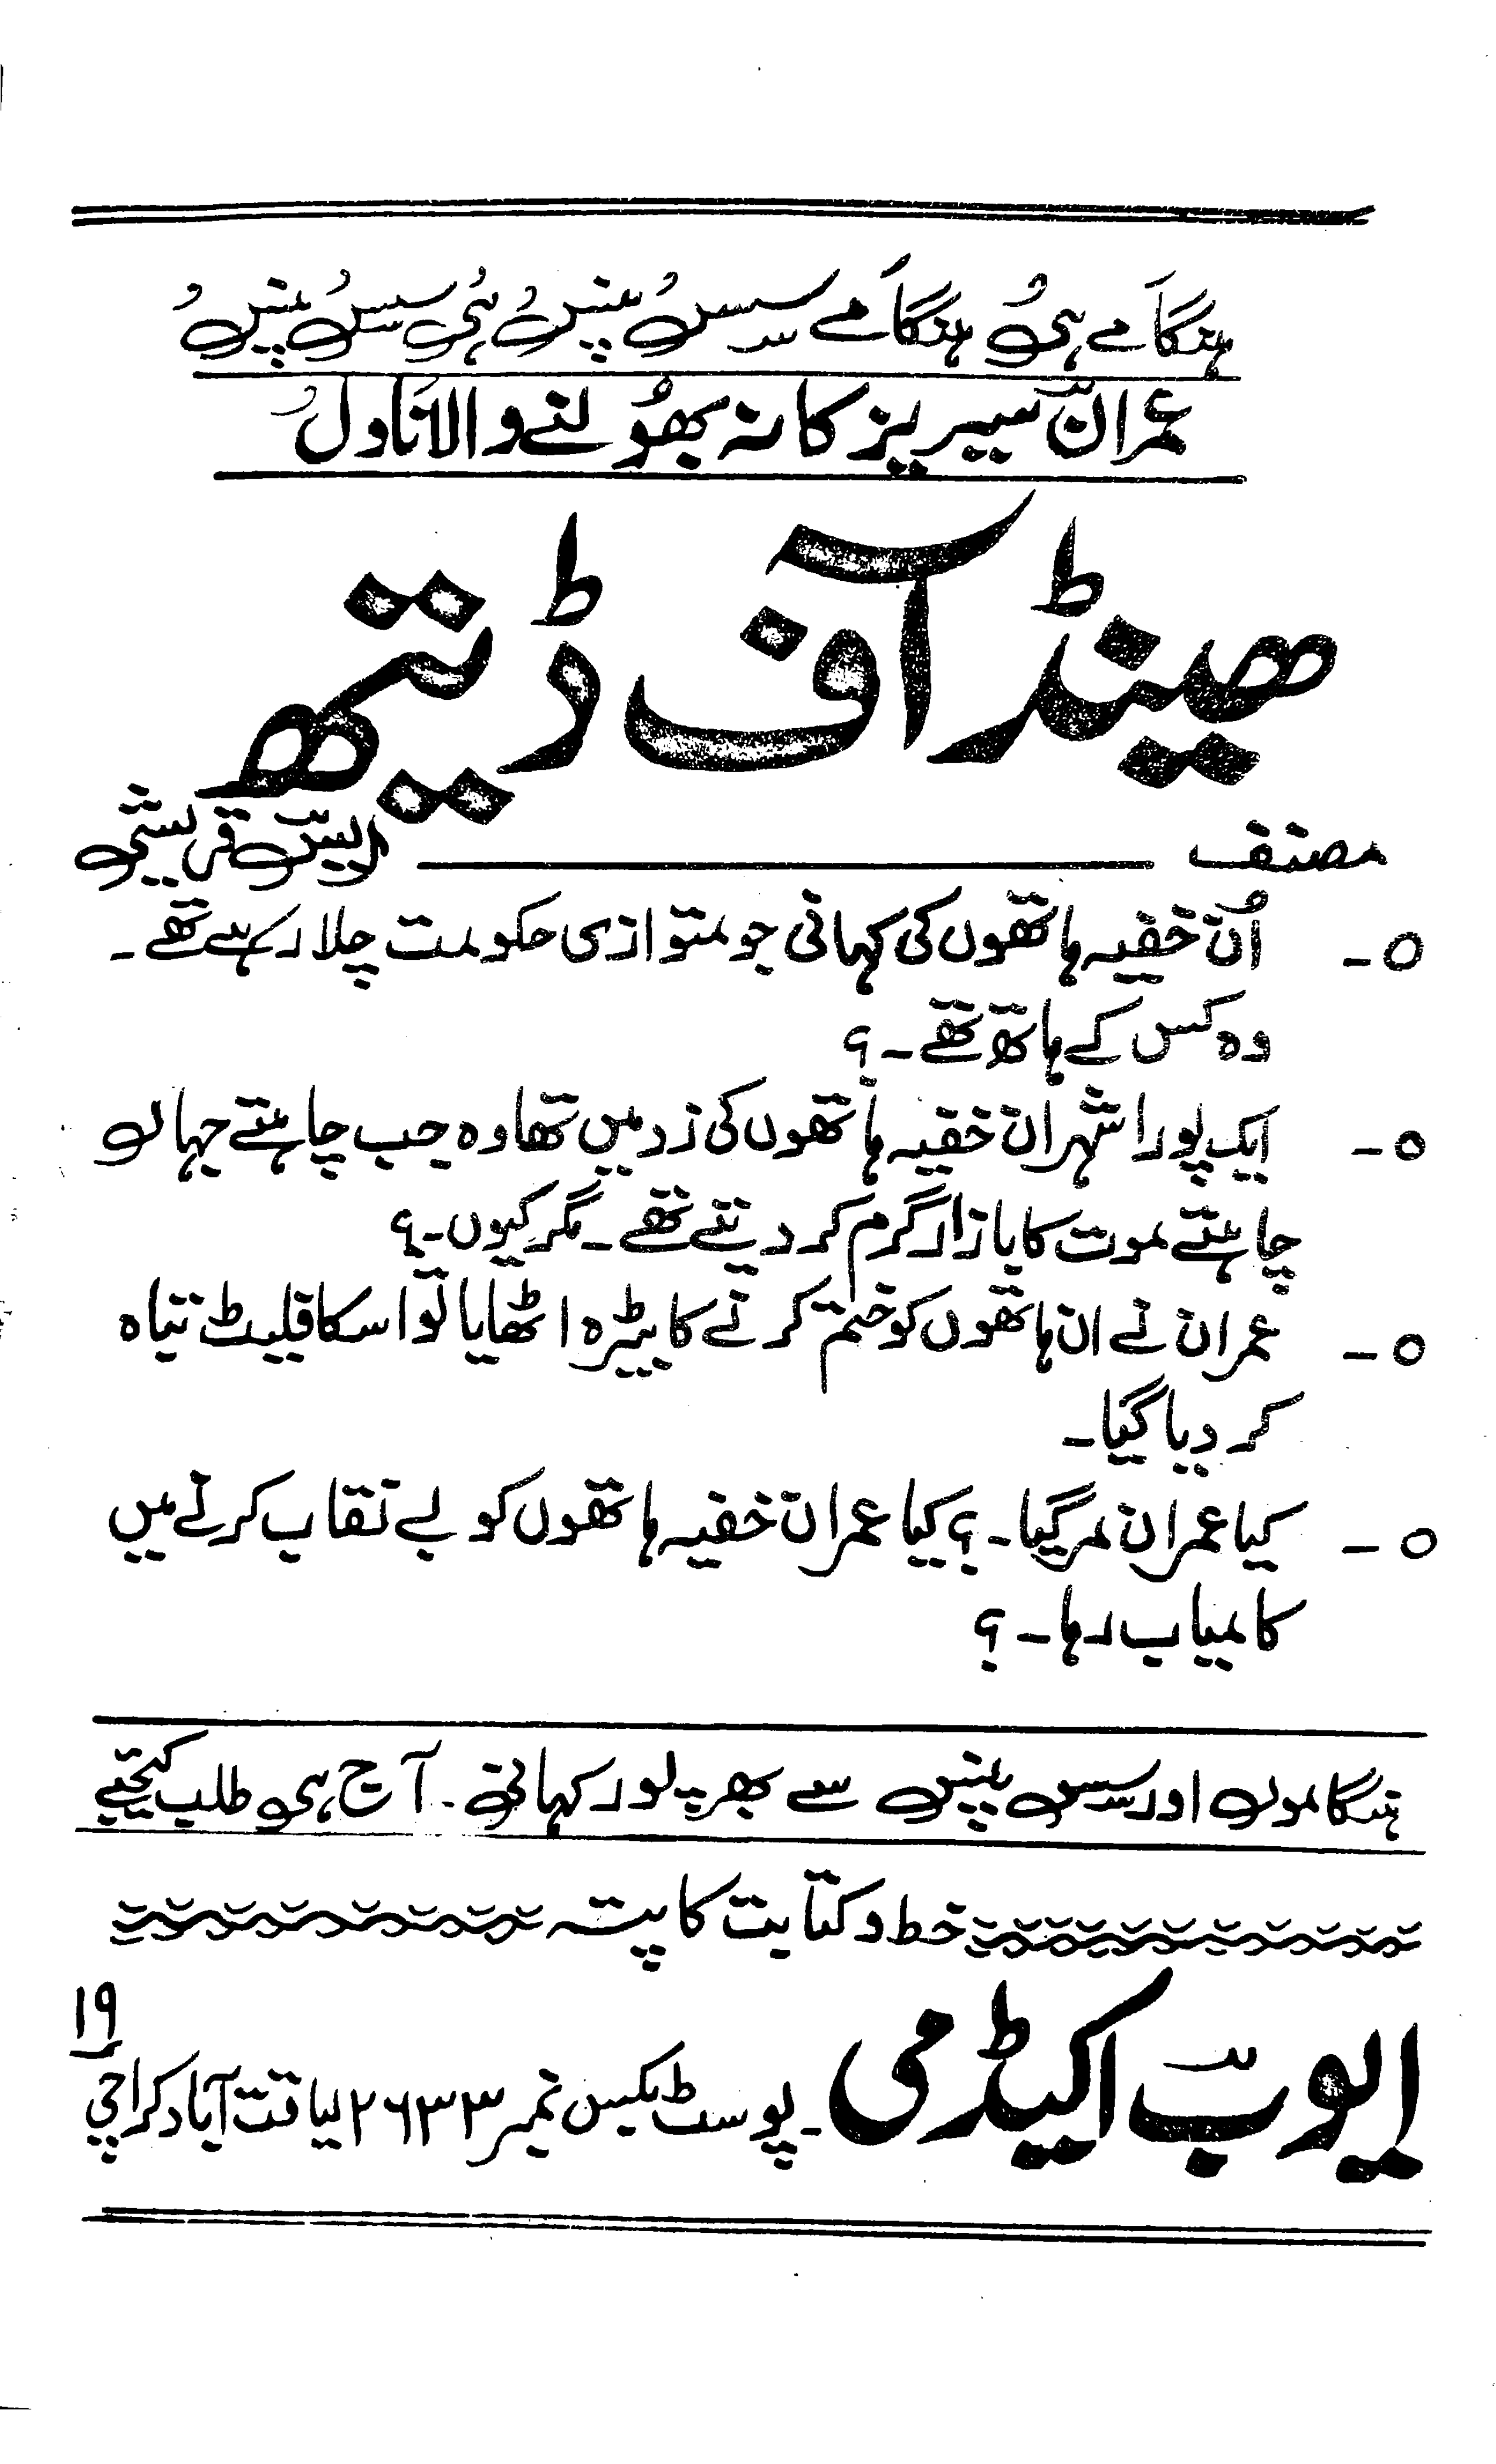 ہنگامے ہی ہنگامے سسپنس ہی سسپنس
عمران سیریز کا نہ بھولنے والا ناول
ہینڈ آف ڈیتھ
مصنف ایس قریشی
○ - اُن خفیہ ہاتھوں کی کہانی جو متوازی حکومت چلا رہے تھے ۔
وہ کس کے ہاتھ تھے ۔ ؟
○ - ایک پورا شہر ان خفیہ ہاتھوں کی زد میں تھا وہ جب چاہتے جہاں
چاہتے موت کا بازار گرم کر دیتے تھے ۔ مگر کیوں ۔ ؟
○ - عمران نے ان ہاتھوں کو ختم کرنے کا بیڑہ اٹھایا تو اسکا فلیٹ تباہ
کر دیا گیا ۔
○ - کیا عمران مر گیا ۔ ؟ کیا عمران خفیہ ہاتھوں کو بے نقاب کرنے میں
کامیاب رہا ۔ ؟
ہنگاموں اور سسپنس سے بھرپور کہانی ۔ آج ہی طلب کیجئے
خط و کتابت کا پتہ
ایوب اکیڈمی ۔ پوسٹ بکس نمبر ۲۶۳۳ لیاقت آباد کراچی ۱۹